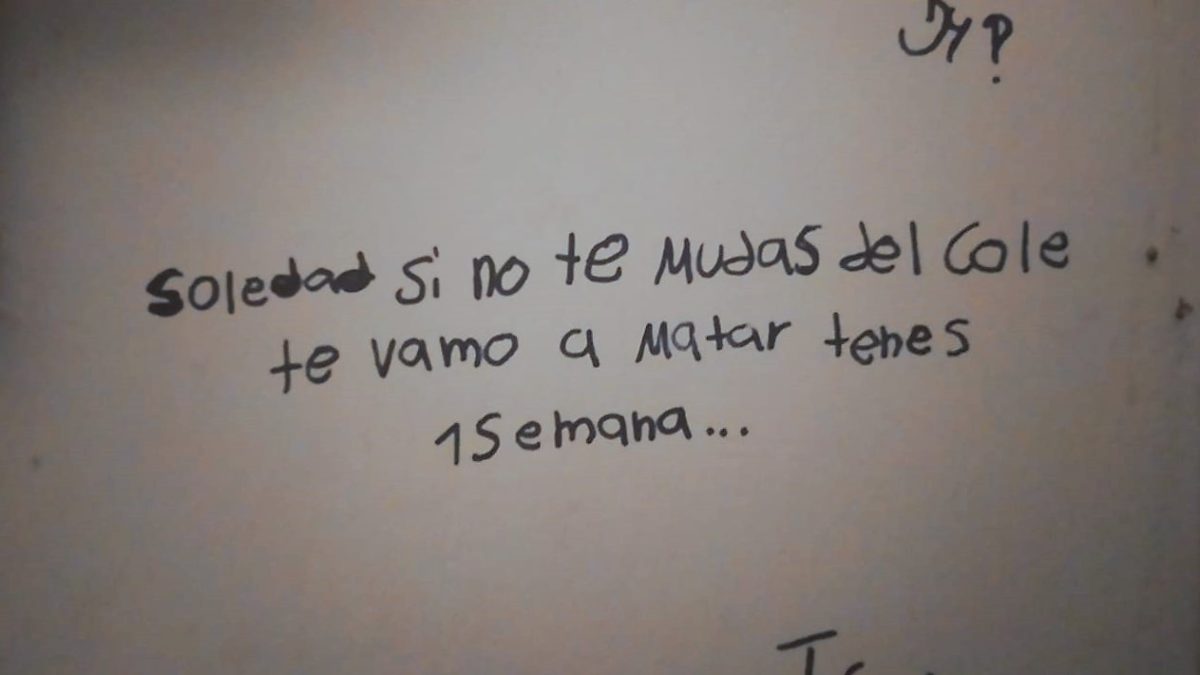 JyP
Soledad si no te mudas del Cole
te vamo a matar tenes
1 Semana...